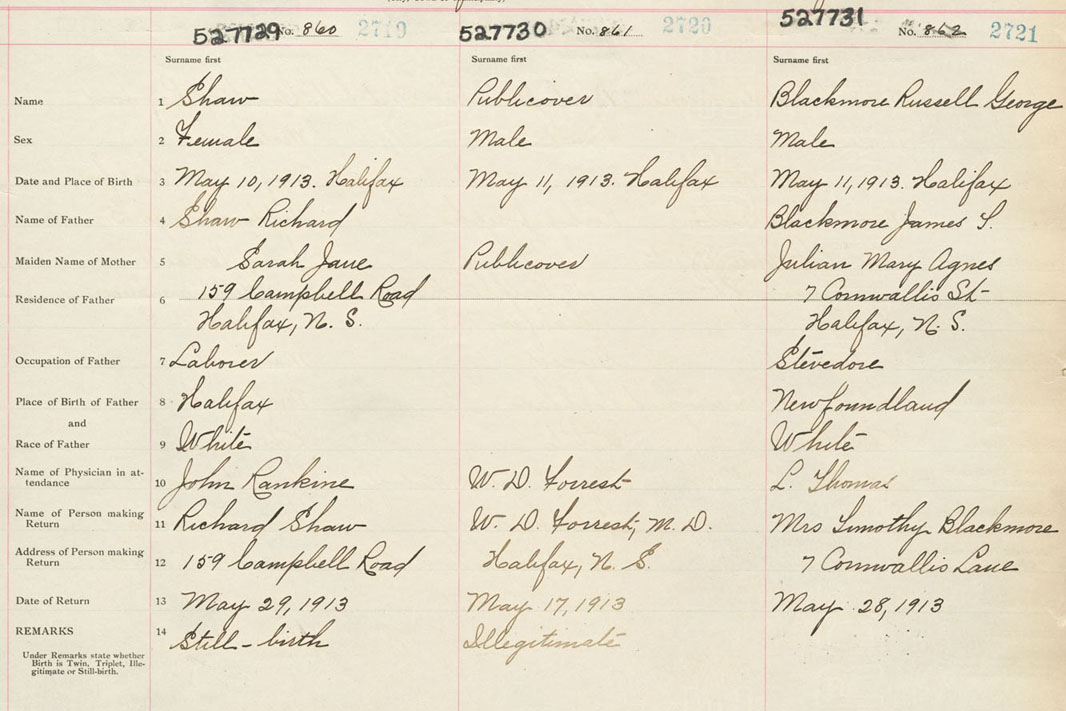 527729 No. 860 2719 527730 No. 861 2720 527731 No. 862 2721
Surname first Surname first Surname first
Name 1 Shaw Publicover Blackmore Russell George
Sex 2 Female Male Male
Date and Place of Birth 3 May 10, 1913. Halifax May 11, 1913. Halifax May 11, 1913. Halifax
Name of Father 4 Shaw Richard Blackmore James S.
Maiden Name of Mother 5 Sarah Jane Publicover Julian Mary Agnes
Residence of Father 6 159 Campbell Road 7 Cornwallis St
Halifax, N. S. Halifax, N. S.
Occupation of Father 7 Laborer Stevedore
Place of Birth of Father 8 Halifax Newfoundland
and
Race of Father 9 White White
Name of Physician in at-
tendance 10 John Rankine W. D. Forrest L. Thomas
Name of Person making
Return 11 Richard Shaw W. D. Forrest, M. D. Mrs Timothy Blackmore
Address of Person making
Return 12 159 Campbell Road Halifax, N. S. 7 Cornwallis Lane
Date of Return 13 May 29, 1913 May 17, 1913 May 28, 1913
REMARKS 14 Still-birth Illegitimate
Under Remarks state whether
Birth is Twin, Triplet, Ille-
gitimate or Still-birth.